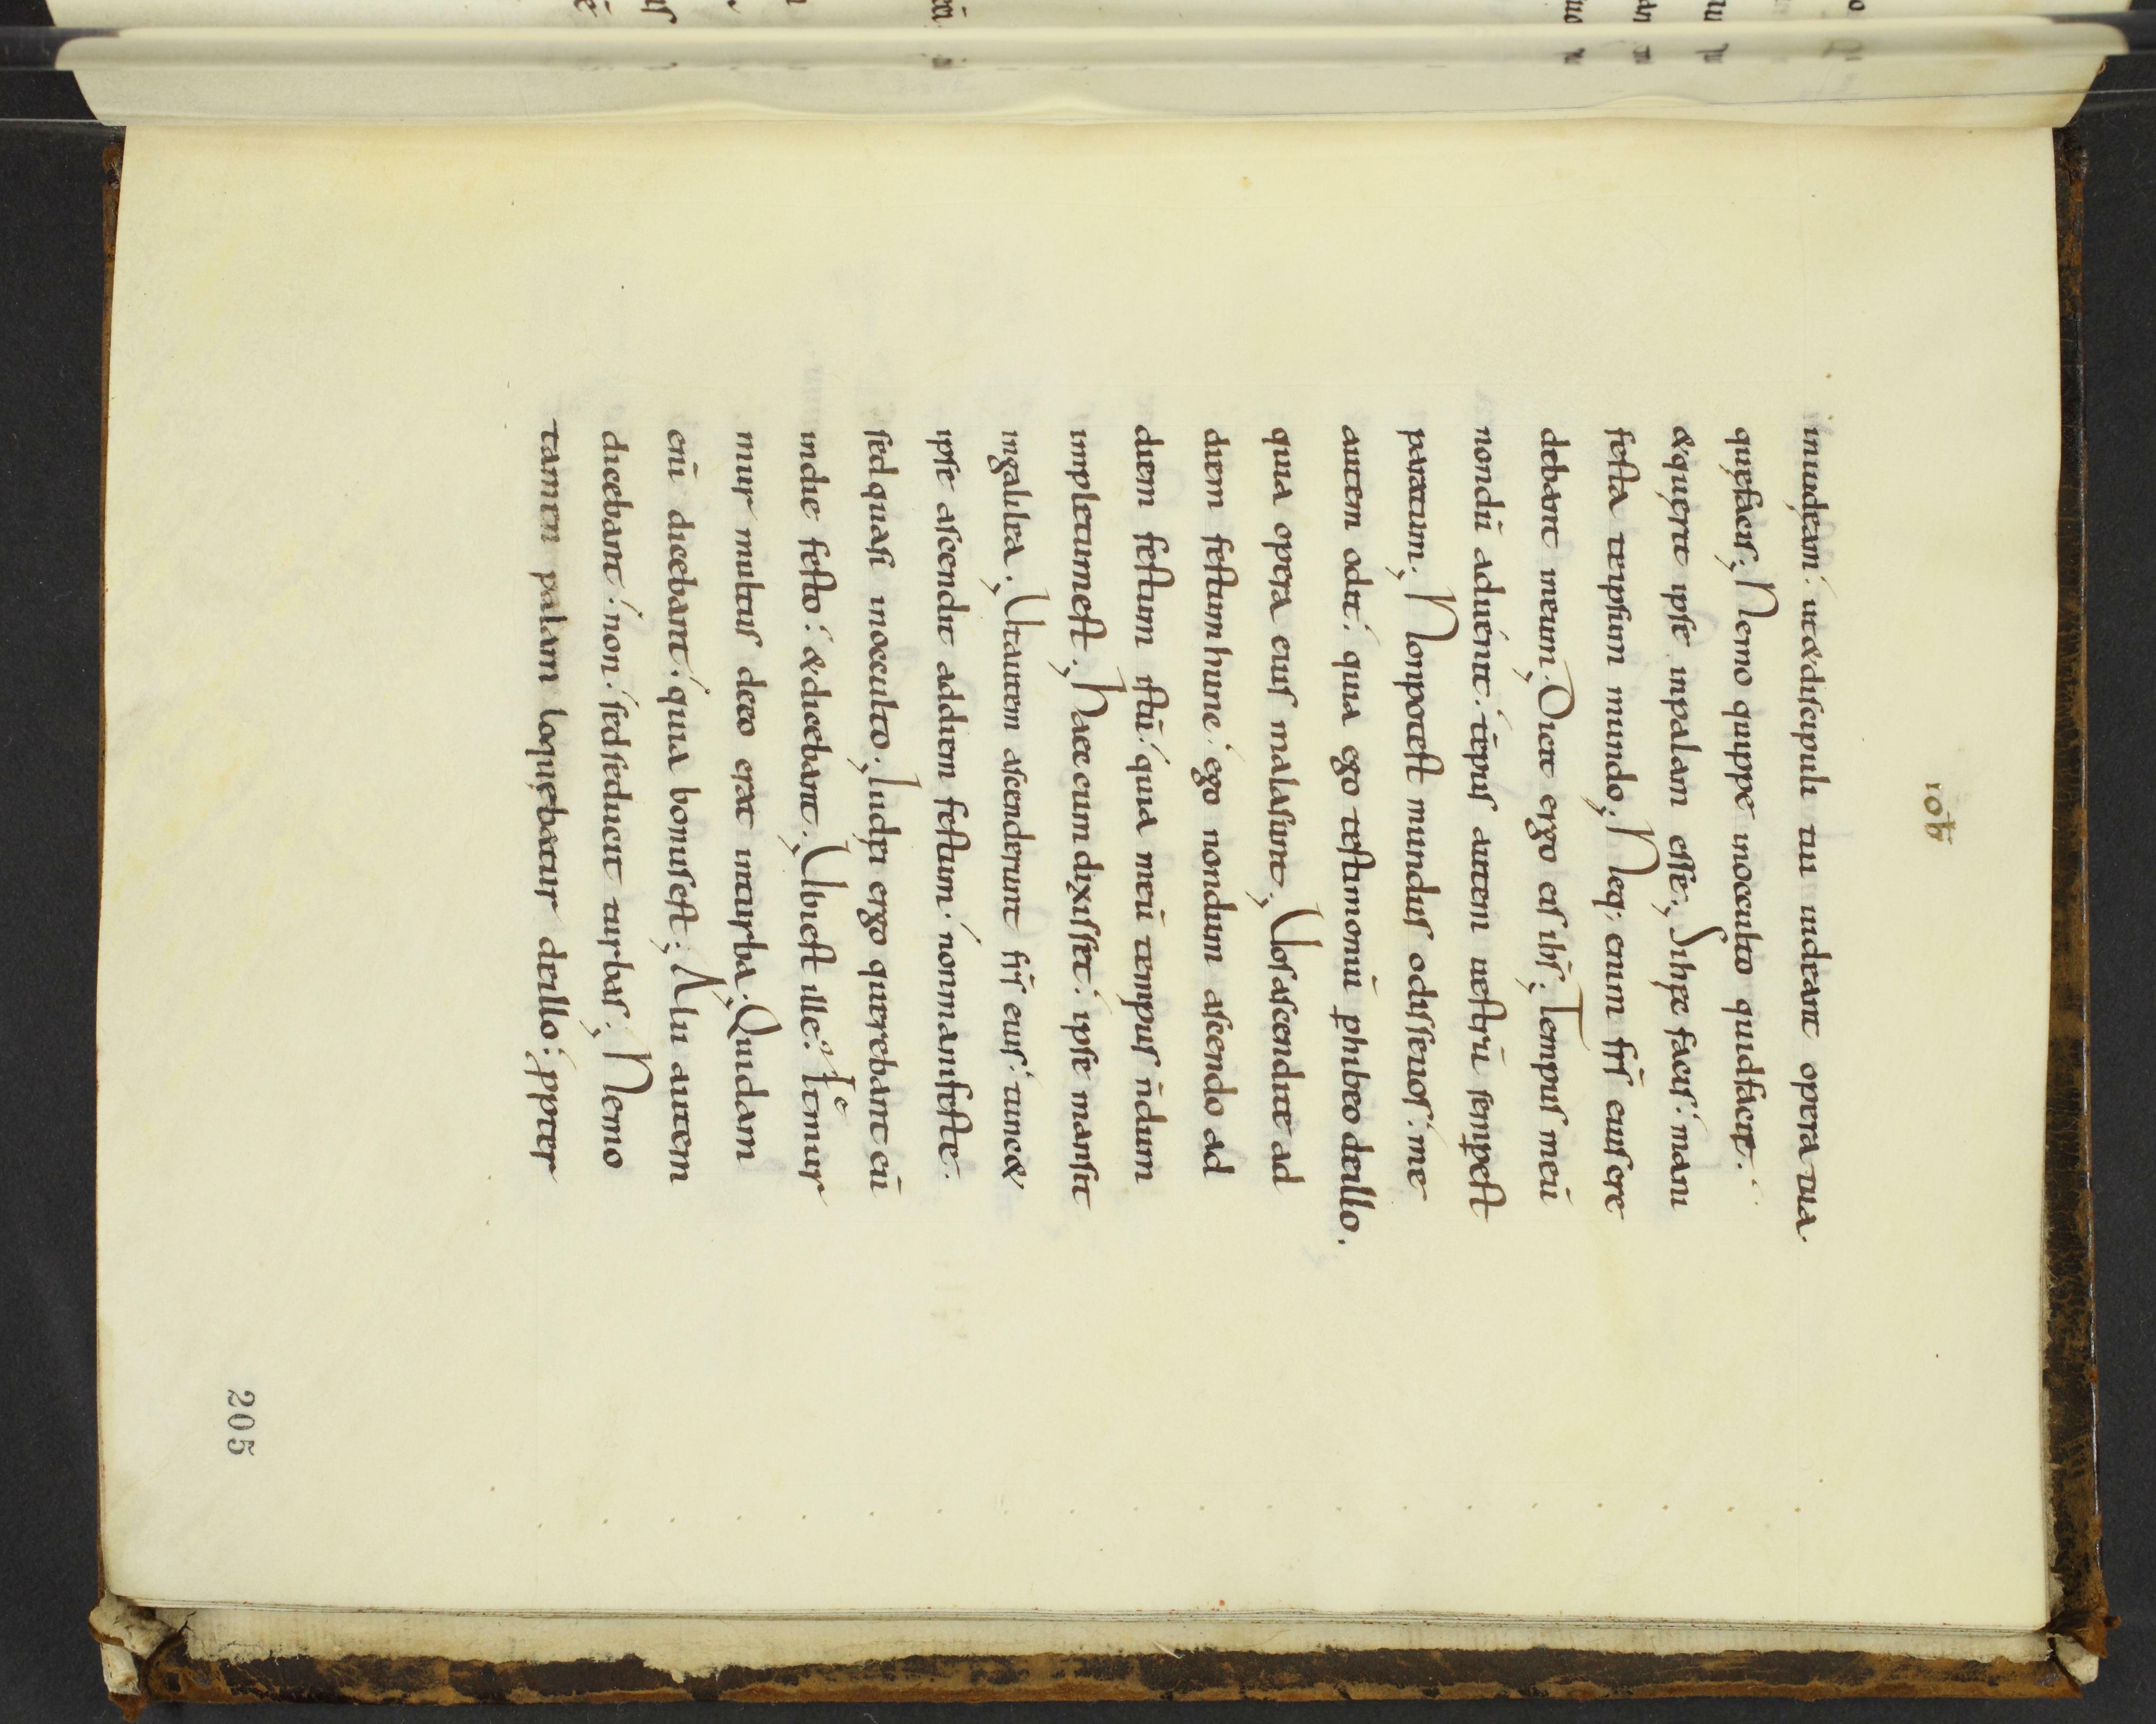 ioħ
iniudęam· ut&discipuli tui uideant opera tua·
quęfacis; Nemo quippe inocculto quidfacit·
&querit ipse inpalam esse; Sihęc facis· mani
festa teipsum mundo; Neq; enim frs̄ eius cre
debant ineum; Dicit ergo eis ihs̄; Tempus meū
nondū aduenit· tēpus autem uestrū semꝑest
paratum; Nonpotest mundus odisseuos· me
autem odit· quia ego testimoniū ꝑhibeo deillo·
quia opera eius malasunt; Uosascendite ad
diem festum hunc· ego nondum ascendo ad
diem festum istū· quia meū tempus n̄dum
impletumest; Haec cum dixisset· ipse mansit
ingalilea; Utautem ascenderunt frs̄ eius· tunc&
ipse ascendit addiem festum· nonmanifeste·
sed quasi inocculto; Iudęi ergo querebant eū
indie festo· &dicebant; Ubiest ille? Et mur
mur multus deeo erat inturba; Quidam
enī dicebant· quia bonusest; Alii autem
dicebant· non· sedseducit turbas; Nemo
tamen palam loquębatur deillo· ꝓpter
205